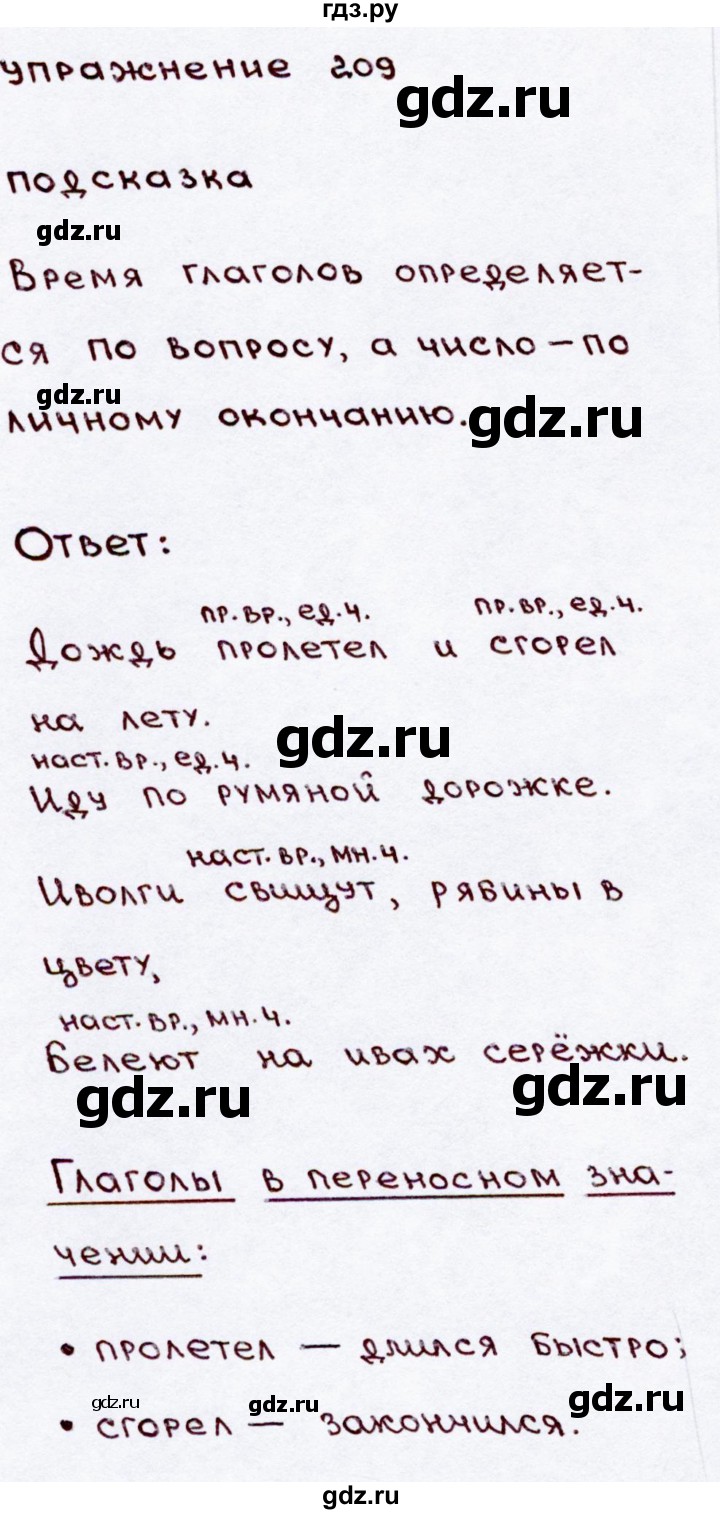 гдз.ру
упражнение 209
gdz.ru
подсказка
gdz.ru
Время глаголов определяет-
ся по вопросу, а число – по
gdz.ru
личному окончанию.
gdz.ru
Ответ:
пр.вр., ед.ч. пр.вр., ед.ч.
Дождь пролетел и сгорел
на лету.
gdz.ru
наст.вр., ед.ч.
Иду по румяной дорожке.
наст.вр., мн.ч.
Иволги свищут, рябины в
цвету,
наст.вр., мн.ч.
Белеют на ивах серёжки.
gdz.ru
gdz.ru
Глаголы в переносном зна-
чении:
• пролетел – длился быстро;
gdz.ru
gdz.ru
gdz.ru
• сгорел – закончился.
gdz.ru